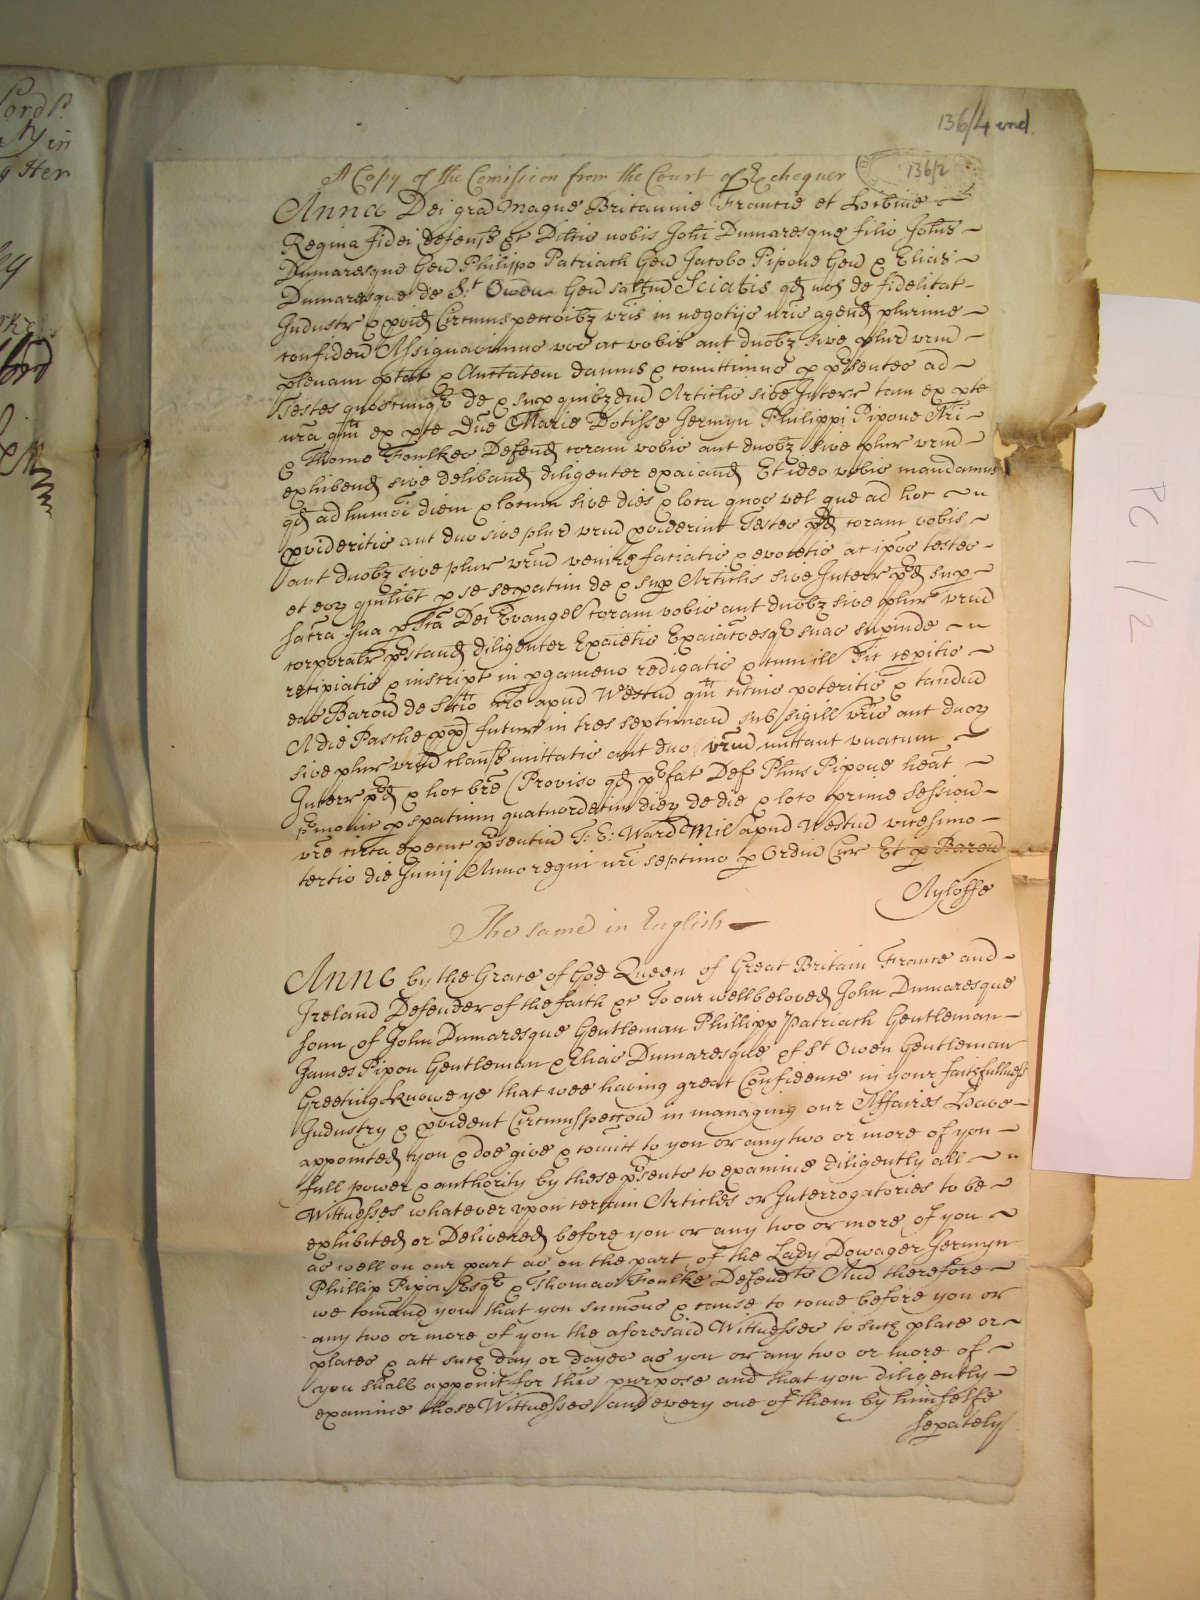 Lord P.
ty in
g Her
136/4 encl.
136/2
PC 1/2
A Copy of the Comission from the Court of Exchequer
Anna Dei gra Magne Britannie Francie et Hibnie
Regina fidei defens &c Diltis nobis Johi Dumaresque filio Johis
Dumaresque Gen Philippo Patriach Gen Jacobo Pipone Gen & Elias
Dumaresque de St Owen Gen saltm Sciatis qd nos de fidelitat
Industr & provid Circumspeccoibz vris in negotijs nris agend plurime
confiden Assignavimus vos ac vobis aut duobz sive plur vrum
plenam ptatem & Auctatem damus & comittimus p psentes ad
Testes quoscunqe de & sup quibzdm Articlis sive Interr tam ex pte
nra qm ex pte Dne Marie Dotisse Jermyn Philippi Pipone Ari
& Thome Foulkes Defend coram vobis aut duobz sive plur vrum
exhibend sive deliband diligenter exaiand Et ideo vobis mandamus
qd ad humoi diem & locum sive dies & loca quos vel que ad hoc
provideritis aut duo sive plur vrum providerint Testes pd coram vobis
aut duobz sive plur vrum venire faciatis & evocetis ac ipos testes
et eoz quilibt p se sepatim de & sup Articlis sive Interr pd sup
sacra sua p sca Dei Evangel coram vobis aut duobz sive plur vrum
corporalr pstand diligenter Exaietis Exaiacoesqe suas supinde
recipiatis & inscript in pgameno redigatis & cum ill sic cepitis
eas Baron de Sccio nro apud Westm qm citius poteritis & tandem
A die Pasche px futur in tres septimans sub sigill vris aut duoz
sive plur vrum claus mittatis aut duo vrum mittant unacum
Interr pd & hoc bre Proviso qd pfat Def Phus Pipone heat
pmonic p spatium quatuordecim diez de die & loco prime session
vre circa execuc psentium T: E: Ward Mil apud Westm vicesimo
tertio die Junij Anno regni nri septimo p Ordin Cur Et p Baron
Ayloffe
The same in English
Anne by the Grace of God Queen of Great Britain France and
Ireland Defender of the faith &c To our wellbeloved John Dumaresque
sonn of John Dumaresque Gentleman Phillipp Patriach Gentleman
James Pipon Gentleman & Elias Dumaresque of St Owen Gentleman
Greeting Knowe ye that wee having great Confidence in your faithfullness
Industry & provident Circumspeccon in managing our Affaires Have
appointed you & doe give & comitt to you or any two or more of you
full power & authority by these psents to examine diligently all
Wittnesses whatever upon certain Articles or Interrogatories to be
exhibited or Delivered before you or any two or more of you
as well on our part as on the part of the Lady Dowager Jermyn
Phillip Pipon Esqr & Thomas Foulke Defendts And therefore
we comand you that you sumons & cause to come before you or
any two or more of you the aforesaid Wittnesses to such place or
places & att such day or dayes as you or any two or more of
you shall appoint for this purpose and that you diligently
examine those Wittnesses and every one of them by himselfe
sepately